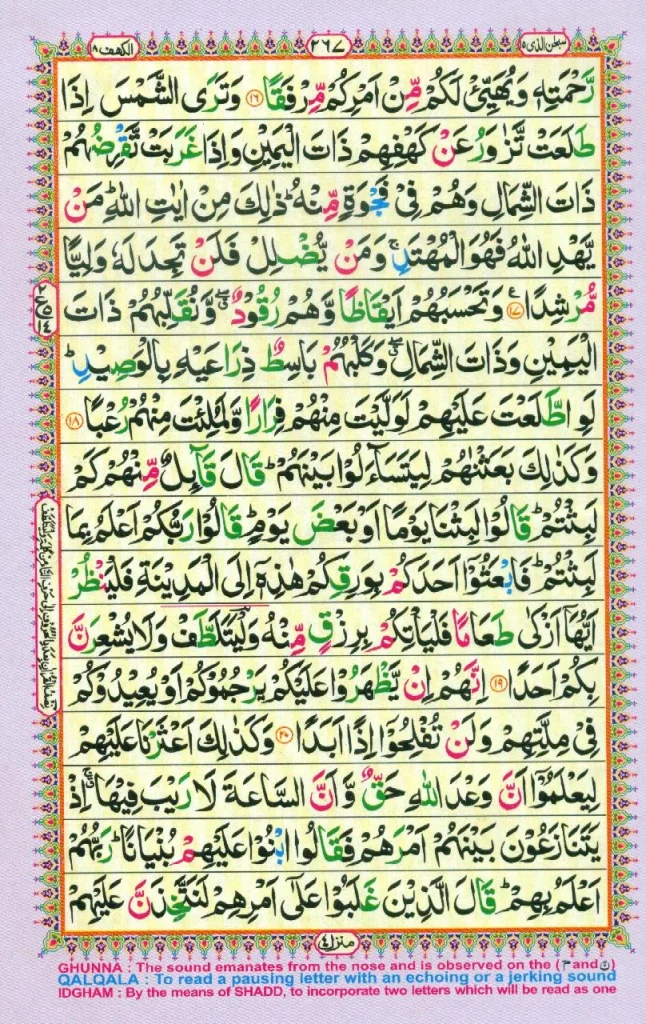 سبحن الذی ۱۵
۲۶۷
الکهف ۱۸
رَّحْمَتِهٖ وَيُهَيِّئْ لَكُمْ مِّنْ اَمْرِكُمْ مِّرْفَقًا ﴿۱۶﴾ وَتَرَى الشَّمْسَ اِذَا
طَلَعَتْ تَّزٰوَرُ عَنْ كَهْفِهِمْ ذَاتَ الْيَمِيْنِ وَاِذَا غَرَبَتْ تَّقْرِضُهُمْ
ذَاتَ الشِّمَالِ وَهُمْ فِيْ فَجْوَةٍ مِّنْهُ ؕ ذٰلِكَ مِنْ اٰيٰتِ اللّٰهِ ؕ مَنْ
يَّهْدِ اللّٰهُ فَهُوَ الْمُهْتَدِ ۚ وَمَنْ يُّضْلِلْ فَلَنْ تَجِدَ لَهٗ وَلِيًّا
مُّرْشِدًا ﴿۱۷﴾ وَتَحْسَبُهُمْ اَيْقَاظًا وَّهُمْ رُقُوْدٌ ۖ وَّنُقَلِّبُهُمْ ذَاتَ
الْيَمِيْنِ وَذَاتَ الشِّمَالِ ۖ وَكَلْبُهُمْ بَاسِطٌ ذِرَاعَيْهِ بِالْوَصِيْدِ ؕ
لَوِ اطَّلَعْتَ عَلَيْهِمْ لَوَلَّيْتَ مِنْهُمْ فِرَارًا وَّلَمُلِئْتَ مِنْهُمْ رُعْبًا ﴿۱۸﴾
وَكَذٰلِكَ بَعَثْنٰهُمْ لِيَتَسَآءَلُوْا بَيْنَهُمْ ؕ قَالَ قَآئِلٌ مِّنْهُمْ كَمْ
لَبِثْتُمْ ؕ قَالُوْا لَبِثْنَا يَوْمًا اَوْ بَعْضَ يَوْمٍ ؕ قَالُوْا رَبُّكُمْ اَعْلَمُ بِمَا
لَبِثْتُمْ ؕ فَابْعَثُوْۤا اَحَدَكُمْ بِوَرِقِكُمْ هٰذِهٖۤ اِلَى الْمَدِيْنَةِ فَلْيَنْظُرْ
اَيُّهَاۤ اَزْكٰى طَعَامًا فَلْيَاْتِكُمْ بِرِزْقٍ مِّنْهُ وَلْيَتَلَطَّفْ وَلَا يُشْعِرَنَّ
بِكُمْ اَحَدًا ﴿۱۹﴾ اِنَّهُمْ اِنْ يَّظْهَرُوْا عَلَيْكُمْ يَرْجُمُوْكُمْ اَوْ يُعِيْدُوْكُمْ
فِيْ مِلَّتِهِمْ وَلَنْ تُفْلِحُوْۤا اِذًا اَبَدًا ﴿۲۰﴾ وَكَذٰلِكَ اَعْثَرْنَا عَلَيْهِمْ
لِيَعْلَمُوْۤا اَنَّ وَعْدَ اللّٰهِ حَقٌّ وَّاَنَّ السَّاعَةَ لَا رَيْبَ فِيْهَا ۚ اِذْ
يَتَنَازَعُوْنَ بَيْنَهُمْ اَمْرَهُمْ فَقَالُوا ابْنُوْا عَلَيْهِمْ بُنْيَانًا ؕ رَبُّهُمْ
اَعْلَمُ بِهِمْ ؕ قَالَ الَّذِيْنَ غَلَبُوْا عَلٰۤى اَمْرِهِمْ لَنَتَّخِذَنَّ عَلَيْهِمْ
منزل ۴
GHUNNA : The sound emanates from the nose and is observed on the (م and ن)
QALQALA : To read a pausing letter with an echoing or a jerking sound
IDGHAM : By the means of SHADD, to incorporate two letters which will be read as one